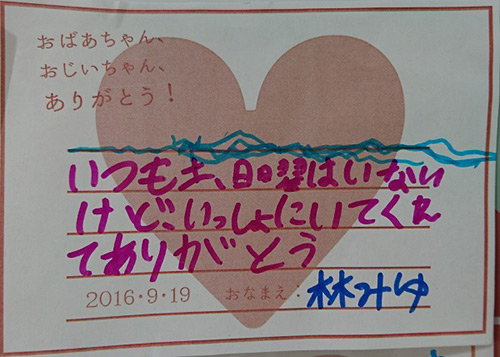 おばあちゃん、
おじいちゃん、
ありがとう！
いつも土、日曜はいない
けど、いっしょにいてくれ
てありがとう
2016・9・19 おなまえ：林みゆ